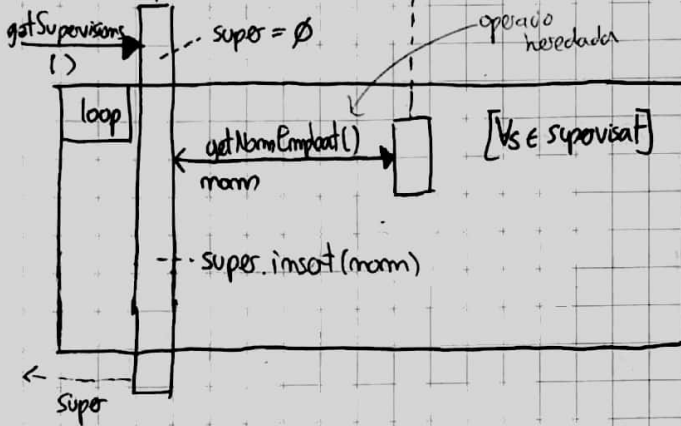 getSupervisions
()
super = ∅
operació
heredada
loop
getNomEmpleat()
nom
[∀s ∈ supervisat]
super.insert(nom)
super